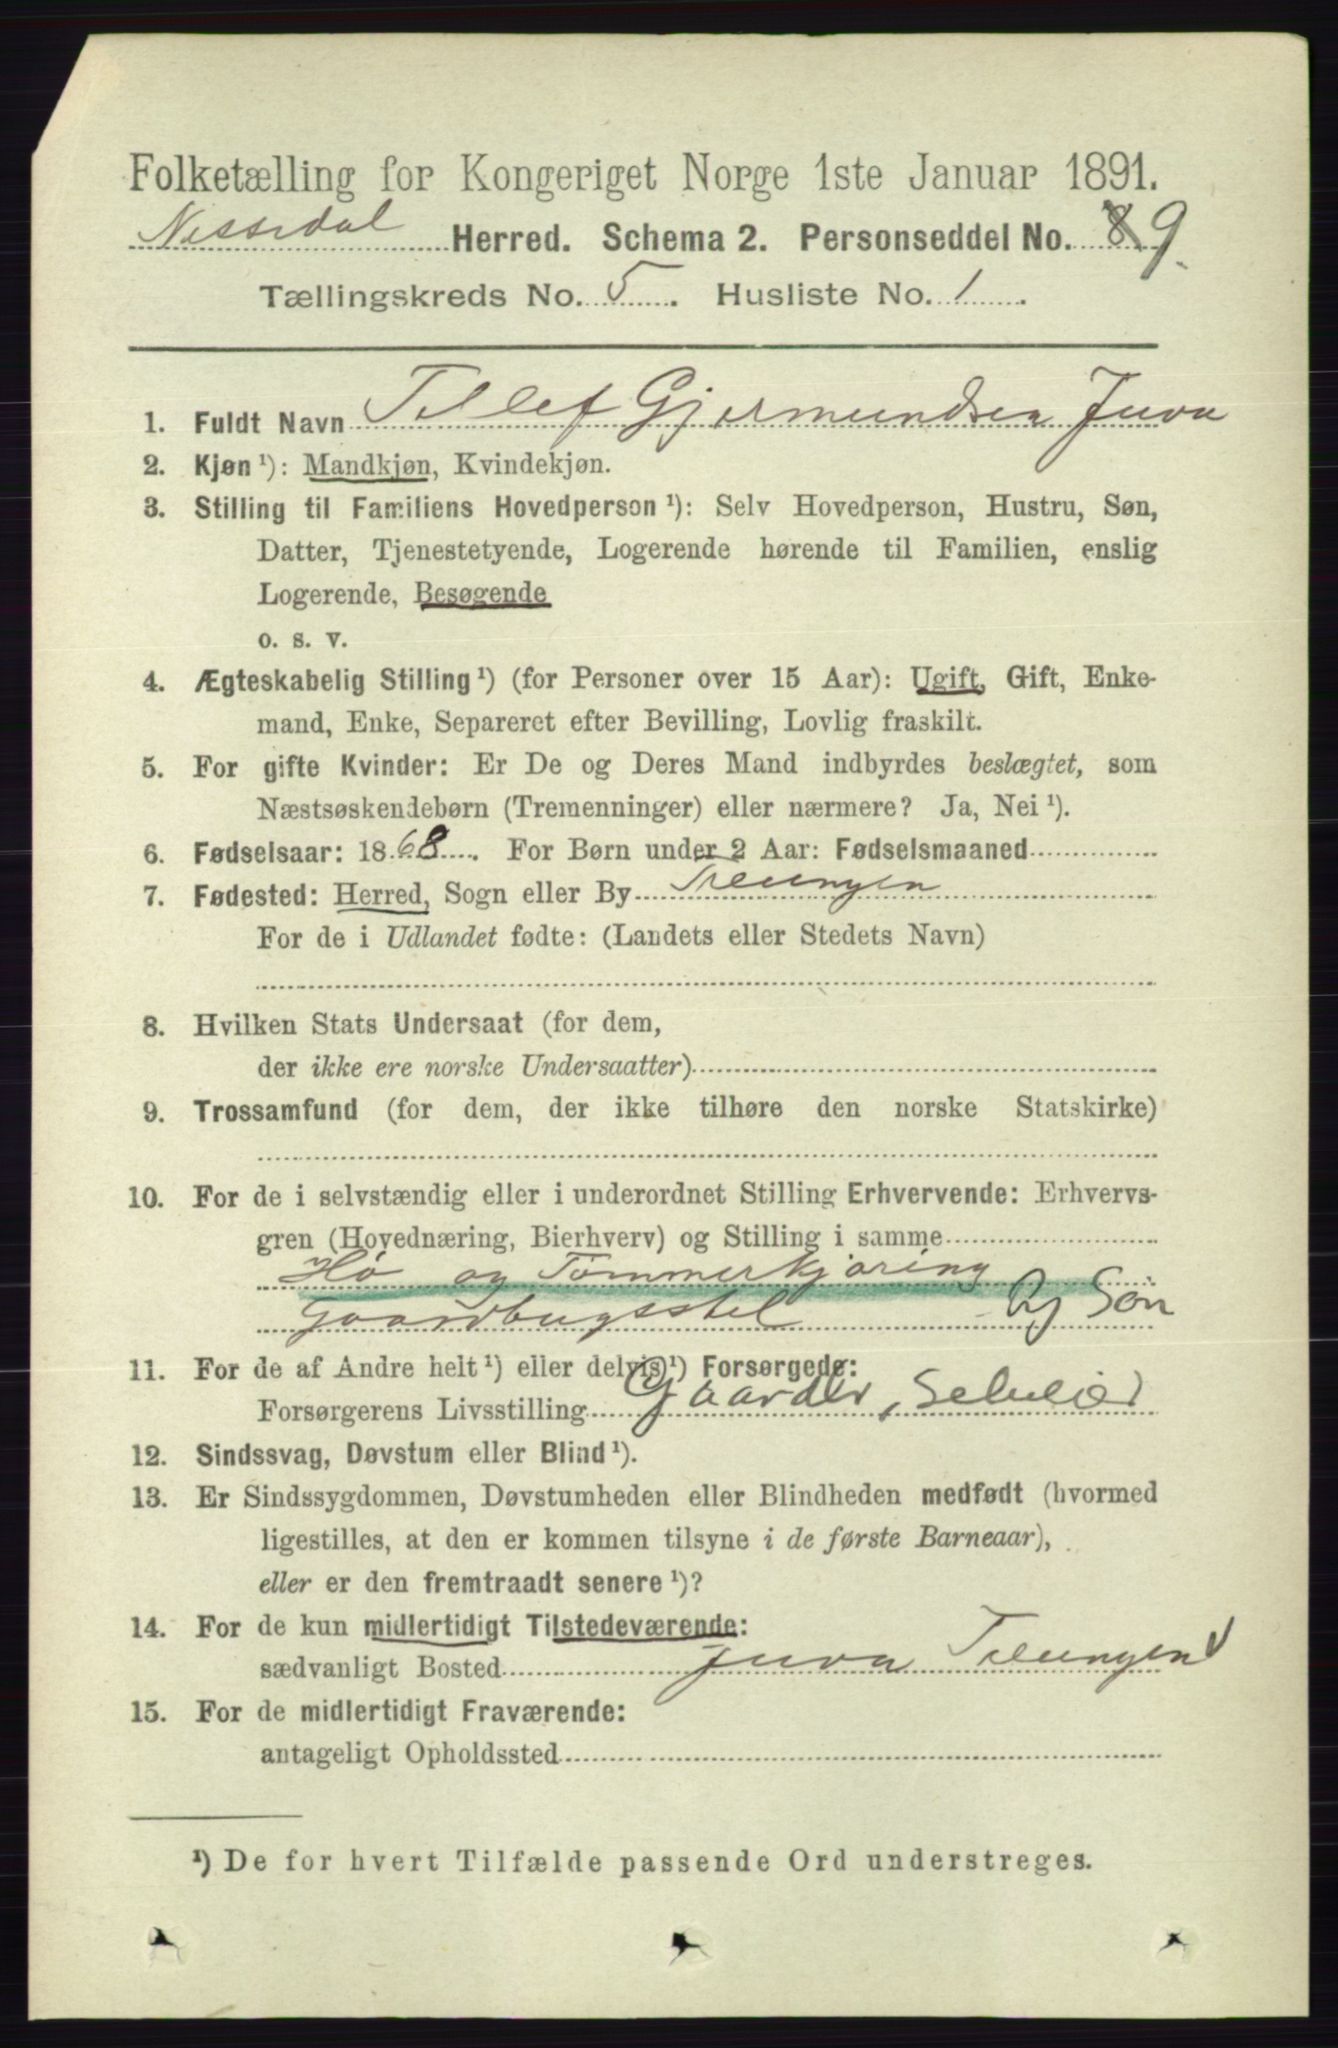 Folketælling for Kongeriget Norge 1ste Januar 1891.
Nissedal Herred. Schema 2. Personseddel No. 8 9
Tællingskreds No. 5. Husliste No. 1.
1. Fuldt Navn Tellef Gjermundsen Juva
2. Kjøn ¹): Mandkjøn, Kvindekjøn.
3. Stilling til Familiens Hovedperson ¹): Selv Hovedperson, Hustru, Søn,
Datter, Tjenestetyende, Logerende hørende til Familien, enslig
Logerende, Besøgende
o. s. v.
4. Ægteskabelig Stilling ¹) (for Personer over 15 Aar): Ugift, Gift, Enke-
mand, Enke, Separeret efter Bevilling, Lovlig fraskilt.
5. For gifte Kvinder: Er De og Deres Mand indbyrdes beslægtet, som
Næstsøskendebørn (Tremenninger) eller nærmere? Ja, Nei ¹).
6. Fødselsaar: 1868. For Børn under 2 Aar: Fødselsmaaned
7. Fødested: Herred, Sogn eller By Treungen
For de i Udlandet fødte: (Landets eller Stedets Navn)
8. Hvilken Stats Undersaat (for dem,
der ikke ere norske Undersaatter)
9. Trossamfund (for dem, der ikke tilhøre den norske Statskirke)
10. For de i selvstændig eller i underordnet Stilling Erhvervende: Erhvervs-
gren (Hovednæring, Bierhverv) og Stilling i samme
Hø og Tømmerkjøring
Gaardbrugsstel Og Søn
11. For de af Andre helt ¹) eller delvis ¹) Forsørgede:
Forsørgerens Livsstilling Gaardbr, Selveier
12. Sindssvag, Døvstum eller Blind ¹).
13. Er Sindssygdommen, Døvstumheden eller Blindheden medfødt (hvormed
ligestilles, at den er kommen tilsyne i de første Barneaar),
eller er den fremtraadt senere ¹)?
14. For de kun midlertidigt Tilstedeværende:
sædvanligt Bosted Juva Treungen
15. For de midlertidigt Fraværende:
antageligt Opholdssted
¹) De for hvert Tilfælde passende Ord understreges.